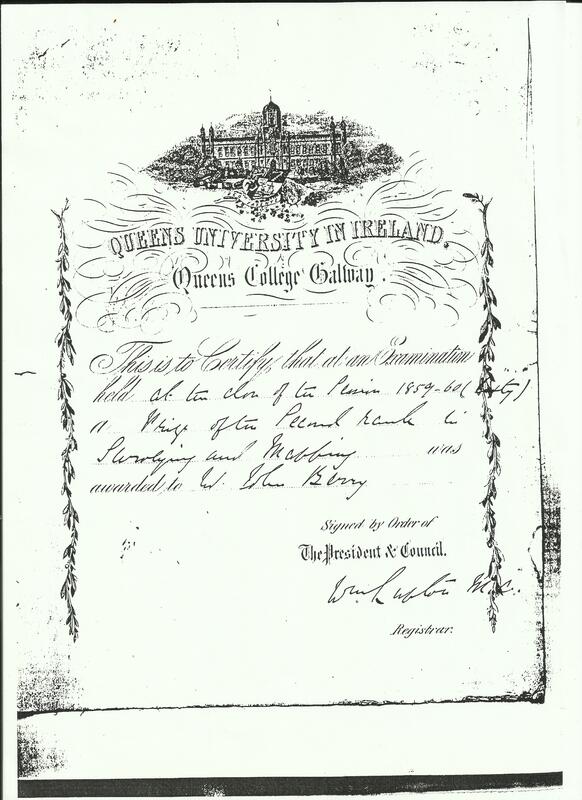 QUEENS UNIVERSITY IN IRELAND.
Queens College Galway.
This is to Certify, that at an Examination
held at the close of the Session 1859-60 (
a Prize of the Second rank in
Surveying and Mapping was
awarded to John Berry
Signed by Order of
The President & Council.
Wm. Lupton M.A.
Registrar.